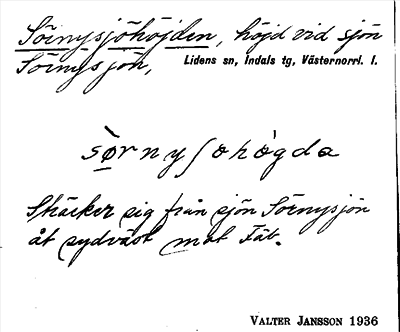 Sörnysjöhöjden, höjd vid sjön
Sörnysjön, Lidens sn, Indals tg, Västernorrl. l.
sørnyʃøhøgda
Sträcker sig från sjön Sörnysjön
åt sydväst mot Fät.
VALTER JANSSON 1936